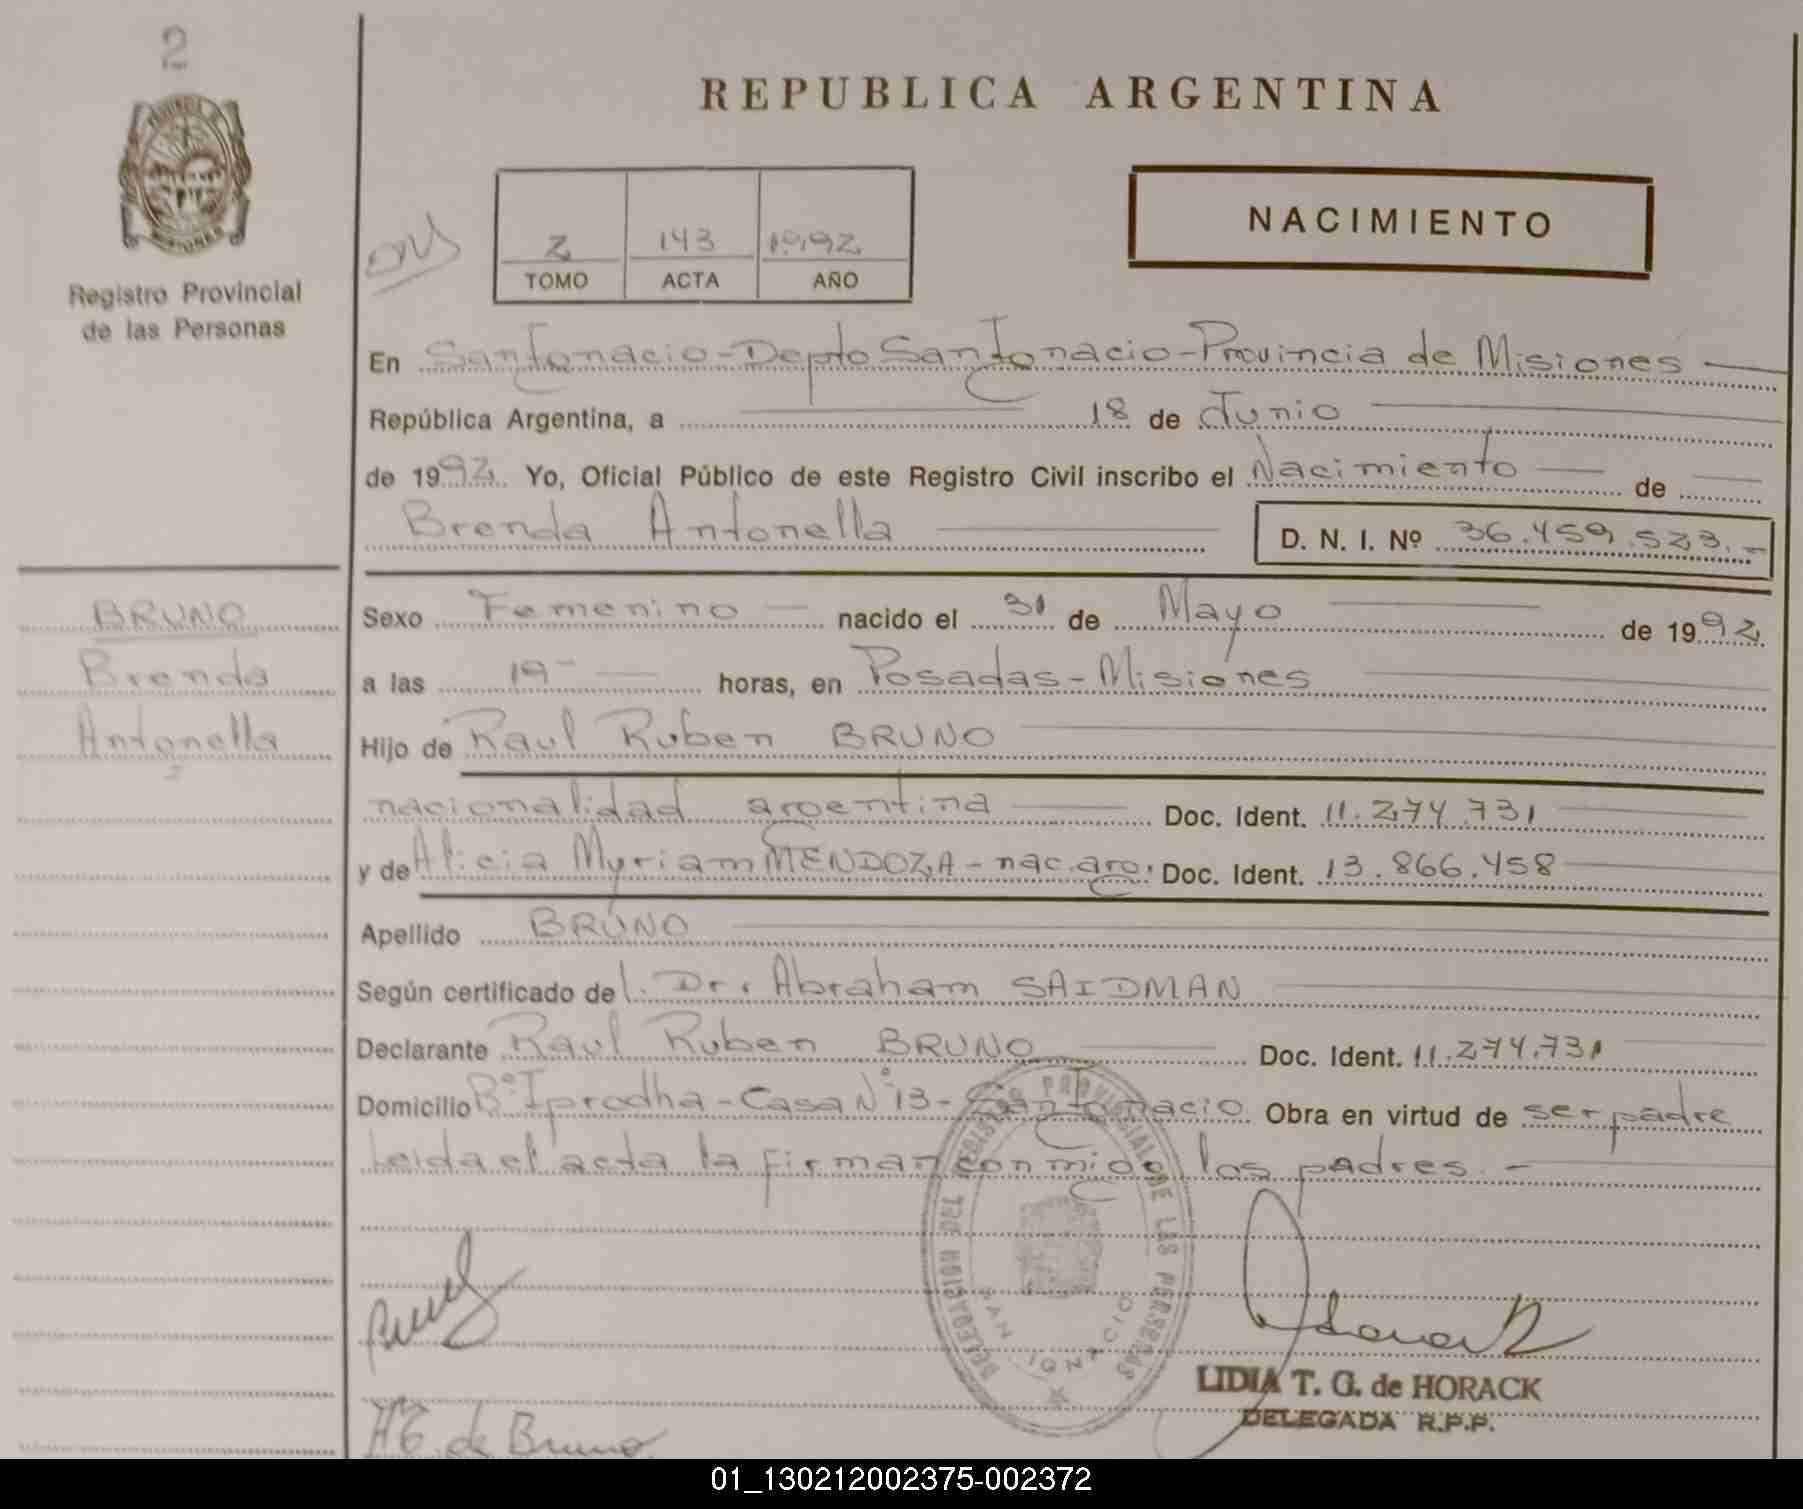 2
PROVINCIA DE
MISIONES
Registro Provincial
de las Personas
REPUBLICA ARGENTINA
NACIMIENTO
2 143 1992
TOMO ACTA AÑO
En San Ignacio - Depto San Ignacio - Provincia de Misiones
República Argentina, a 18 de Junio
de 1992. Yo, Oficial Público de este Registro Civil inscribo el Nacimiento de
Brenda Antonella D. N. I. Nº 36.459.523.-
BRUNO
Brenda
Antonella
Sexo Femenino nacido el 31 de Mayo de 1992
a las 19 horas, en Posadas - Misiones
Hijo de Raul Ruben BRUNO
nacionalidad argentina Doc. Ident. 11.274.731
y de Alicia Myriam MENDOZA - nac. arg. Doc. Ident. 13.866.458
Apellido BRUNO
Según certificado del Dr. Abraham SAIDMAN
Declarante Raul Ruben BRUNO Doc. Ident. 11.274.731
Domicilio Bº Iprodha - Casa Nº 13 - San Ignacio Obra en virtud de ser padre
Leida el acta la firman conmigo los padres.-
DELEGACION DEL REGISTRO PROVINCIAL DE LAS PERSONAS
SAN IGNACIO
LIDIA T. G. de HORACK
DELEGADA R.P.P.
de Bruno
01_130212002375-002372